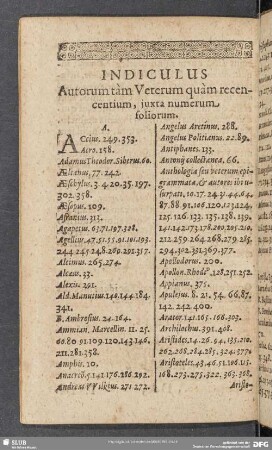 INDICULUS
Autorum tàm Veterum quàm recen-
centium, juxta numerum
foliorum.
A.
ACcius. 249. 353.
Acro. 158.
Adamus Theodor. Siberus. 60.
Ælianus. 77. 242.
Æschylus. 3. 4. 20. 35. 197.
302. 358.
Æsopus. 109.
Afranius. 313.
Agapetus. 63. 71. 197. 328.
Agellius. 47. 51. 55. 91. 101. 193.
244. 245. 248. 269. 291. 357.
Alcimus. 265. 274.
Alcæus. 33.
Alexis. 291.
Ald. Manutius. 140. 144. 184.
341.
B. Ambrosius. 24. 164.
Ammian. Marcellin. 11. 25.
66. 80. 91. 109. 120. 143. 146.
211. 281. 358.
Amphis. 10.
Anacreō. 5. 141. 176. 186. 192.
Andreas Wilkius. 271. 272.
Angelus Aretinus. 288.
Angelus Politianus. 22. 89.
Antiphanes. 133.
Antonij collectanea. 66.
Anthologia seu veterum epi-
grammata, & autores ibi u-
surpati. 10. 17. 24. 31. 44. 64.
87. 88. 91. 106. 120. 121. 124.
125. 126. 132. 135. 138. 139.
141. 142. 161. 176. 209. 210.
212. 259. 264. 268. 279. 285.
294. 295. 309. 324. 362.
Apollodorus. 200.
Apollon. Rhod. 128. 251. 252.
Appianus. 375.
Apulejus. 8. 21. 54. 66. 87.
142. 242. 400.
Arator. 141. 165. 166. 303.
Archilochus. 391. 408.
Aristides. 14. 26. 94. 135. 210.
262. 268. 284. 285. 324. 377.
Aristoteles. 43. 46. 51. 106. 151.
168. 273. 275. 322. 363. 368.
Aristo-
SLUB
DFG